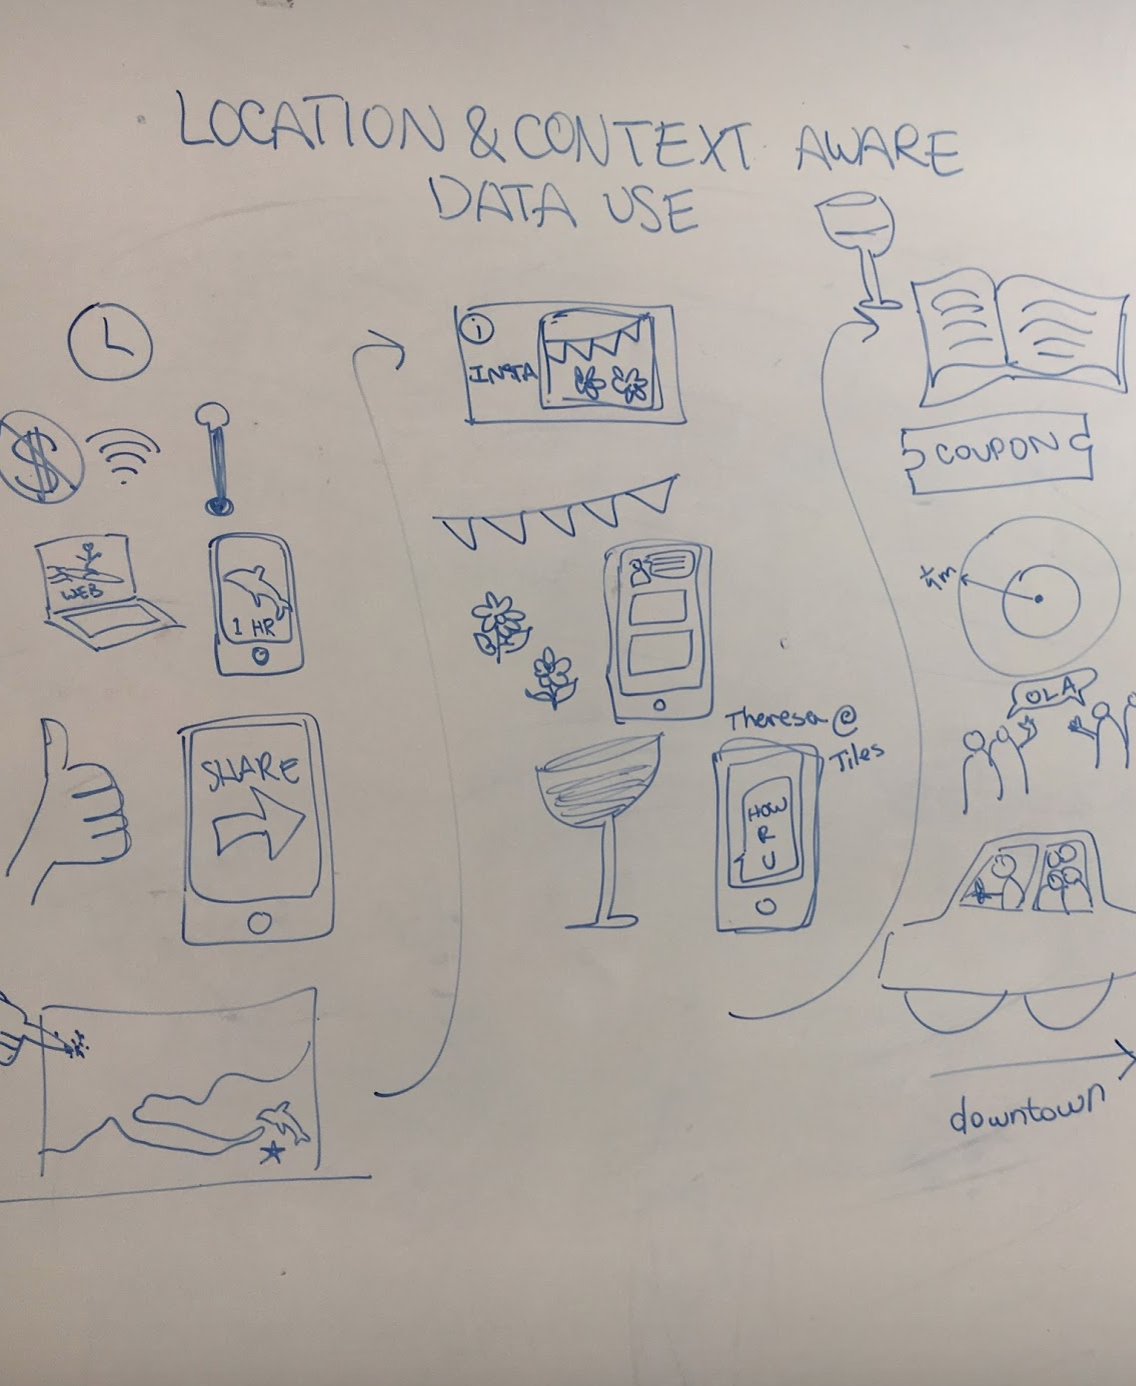 LOCATION & CONTEXT AWARE
DATA USE
$
WEB
1 HR
SHARE
i
INSTA
Theresa @
Tiles
HOW
R
U
COUPON
OLA
downtown